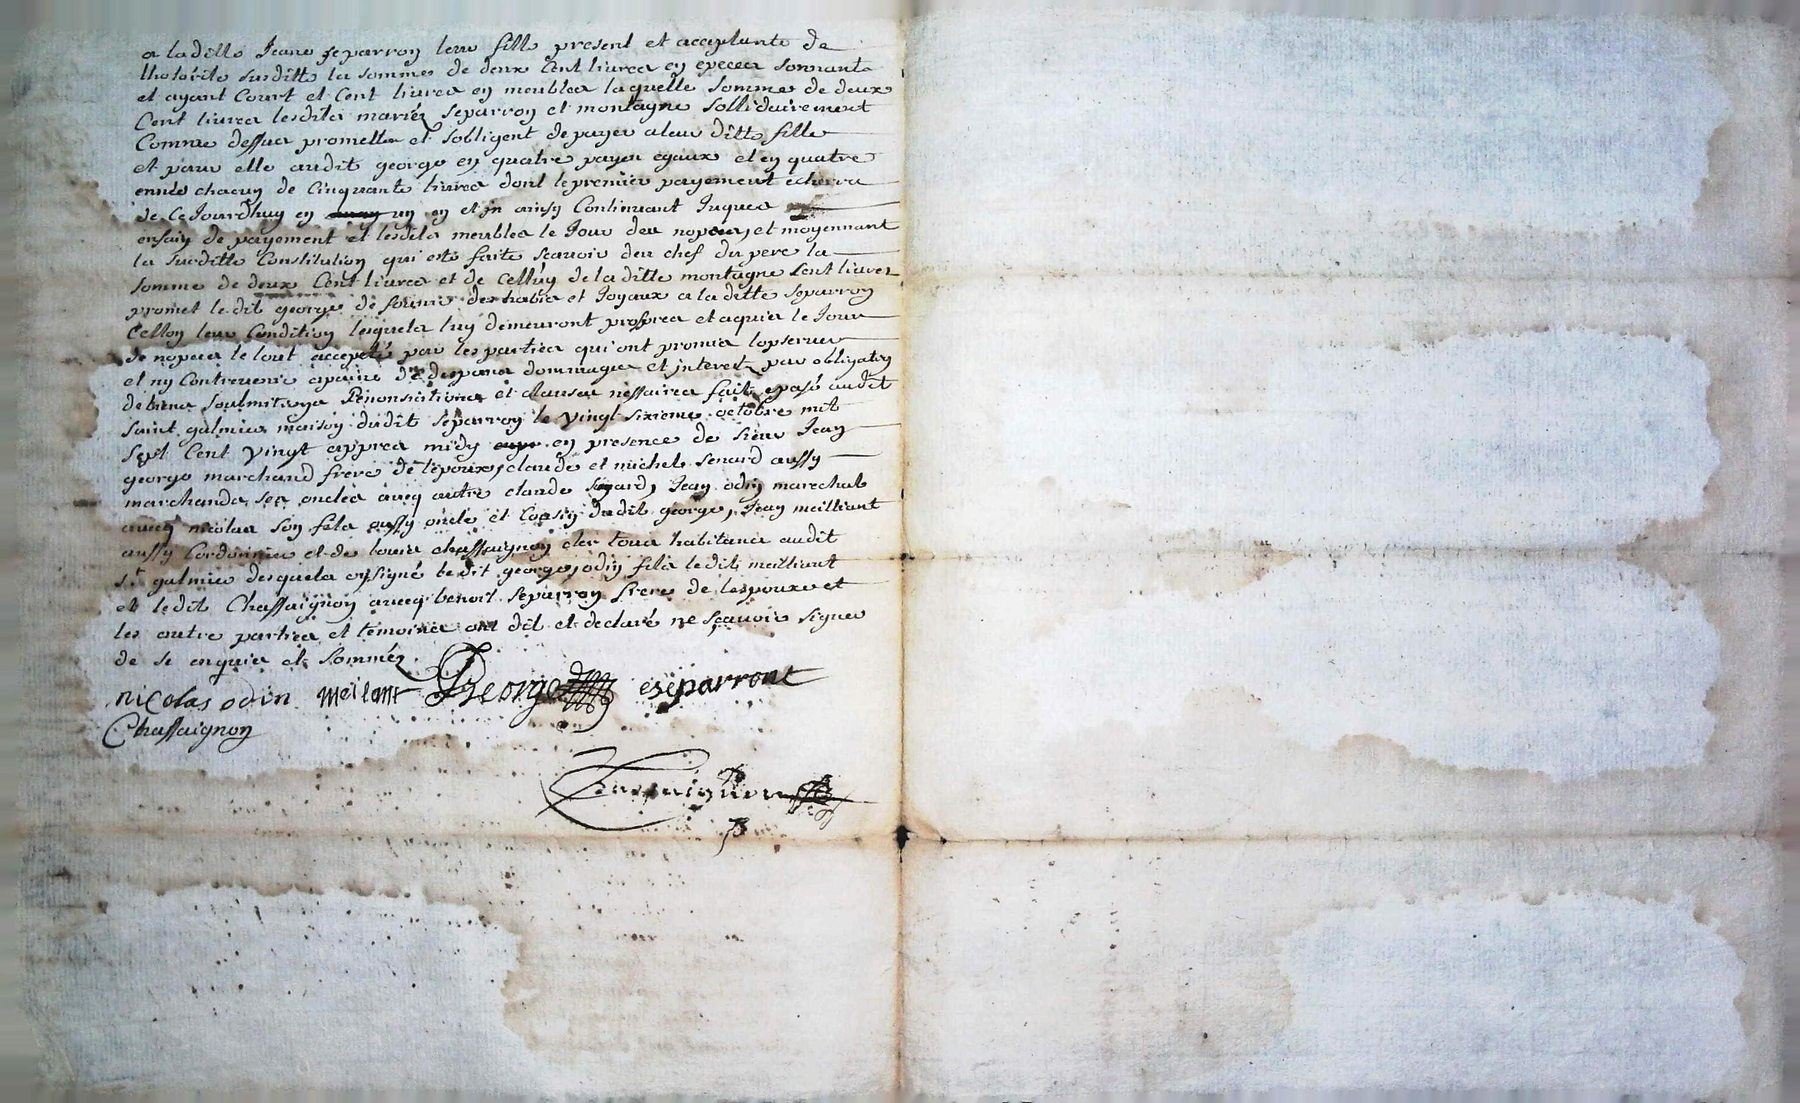 a la ditte Jeane separron leur fille present et acceptante de
lhotorite surditte la somme de deux Cent livres en epeces sonnante
et ayant Court et Cent livres en meubles laquelle somme de deux
Cent livres lesdits mariez separron et montagne sollidairement
Comme dessus promette et sobligent de payer a leur ditte fille
et pour elle audit george en quatre payes egaux et en quatre
année chacun de Cinquante livres dont le premier payement echerra
de Ce Jourdhuy en un en et in ainsy Continuant Juques
enfain de payement et lesdits meubles le Jour deu nopces, et moyennant
la surditte Constitution qui este faite scavoir deu chef du pere la
somme de deux Cent livres et de Celluy de la ditte montagne Cent livres
promet le dit george de fournir des habis et Joyaux a la ditte separron
Cellon leur Condition lesquels luy demeuront propres et aquis le Jour
de nopces le tout accepté par les parties qui ont promis lopserver
et ny Contrevenir apaine de despans dommages et interetz par obligation
de biens soubmitions Renonsiations et clauses nessaires fait epasé audit
saint galmier maison dudit separron le vingt sixieme octobre mil
sept Cent vingt appres midy en presence de sieur Jean
george marchand frere de l'epoux, claude et michel senard aussy
marchands ses oncles avecq autre claude senard, Jean odin marechal
avecq nicolas son fils aussy oncle et Cousin dudit george, Jean meilliant
aussy Cordonnier et de louis chassaignon cler tous habitans audit
st galmier desquels on signé le dit george, odin fils ledit meilliant
et ledit Chassaignon avecq benoit separron frere de lespouse et
les autre parties et temoins ont dit et declaré ne scavoir signer
de se enquis et sommés
nicolas odin meilant George eseparront
Chassaignon